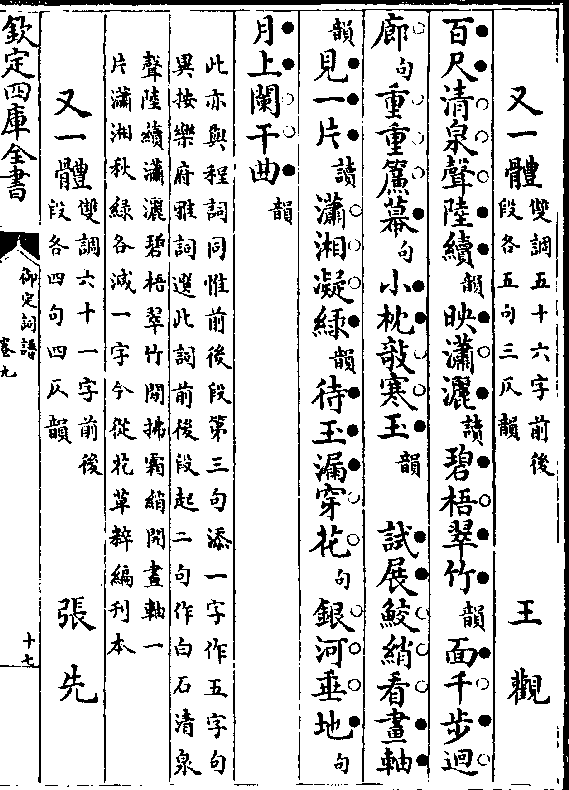 又一體 雙調五十六字前後段各五句三仄韻 王觀
百尺清泉聲陸續韻映瀟灑讀碧梧翠竹韻面千步迴
廊句重重簾幕句小枕敧寒玉韻 試展鮫綃看畫軸
韻見一片讀瀟湘凝綠韻待玉漏穿花句銀河垂地句
月上闌干曲韻
此亦與程詞同惟前後段第三句添一字作五字句
異按樂府雅詞選此詞前後段起二句作白石清泉
聲陸續瀟灑碧梧翠竹閒拂霜綃開畫軸一
片瀟湘秋綠各減一字今從花草粹編刊本
又一體 雙調六十一字前後段各四句四仄韻 張先
欽定四庫全書
御定詞譜
卷九
十七